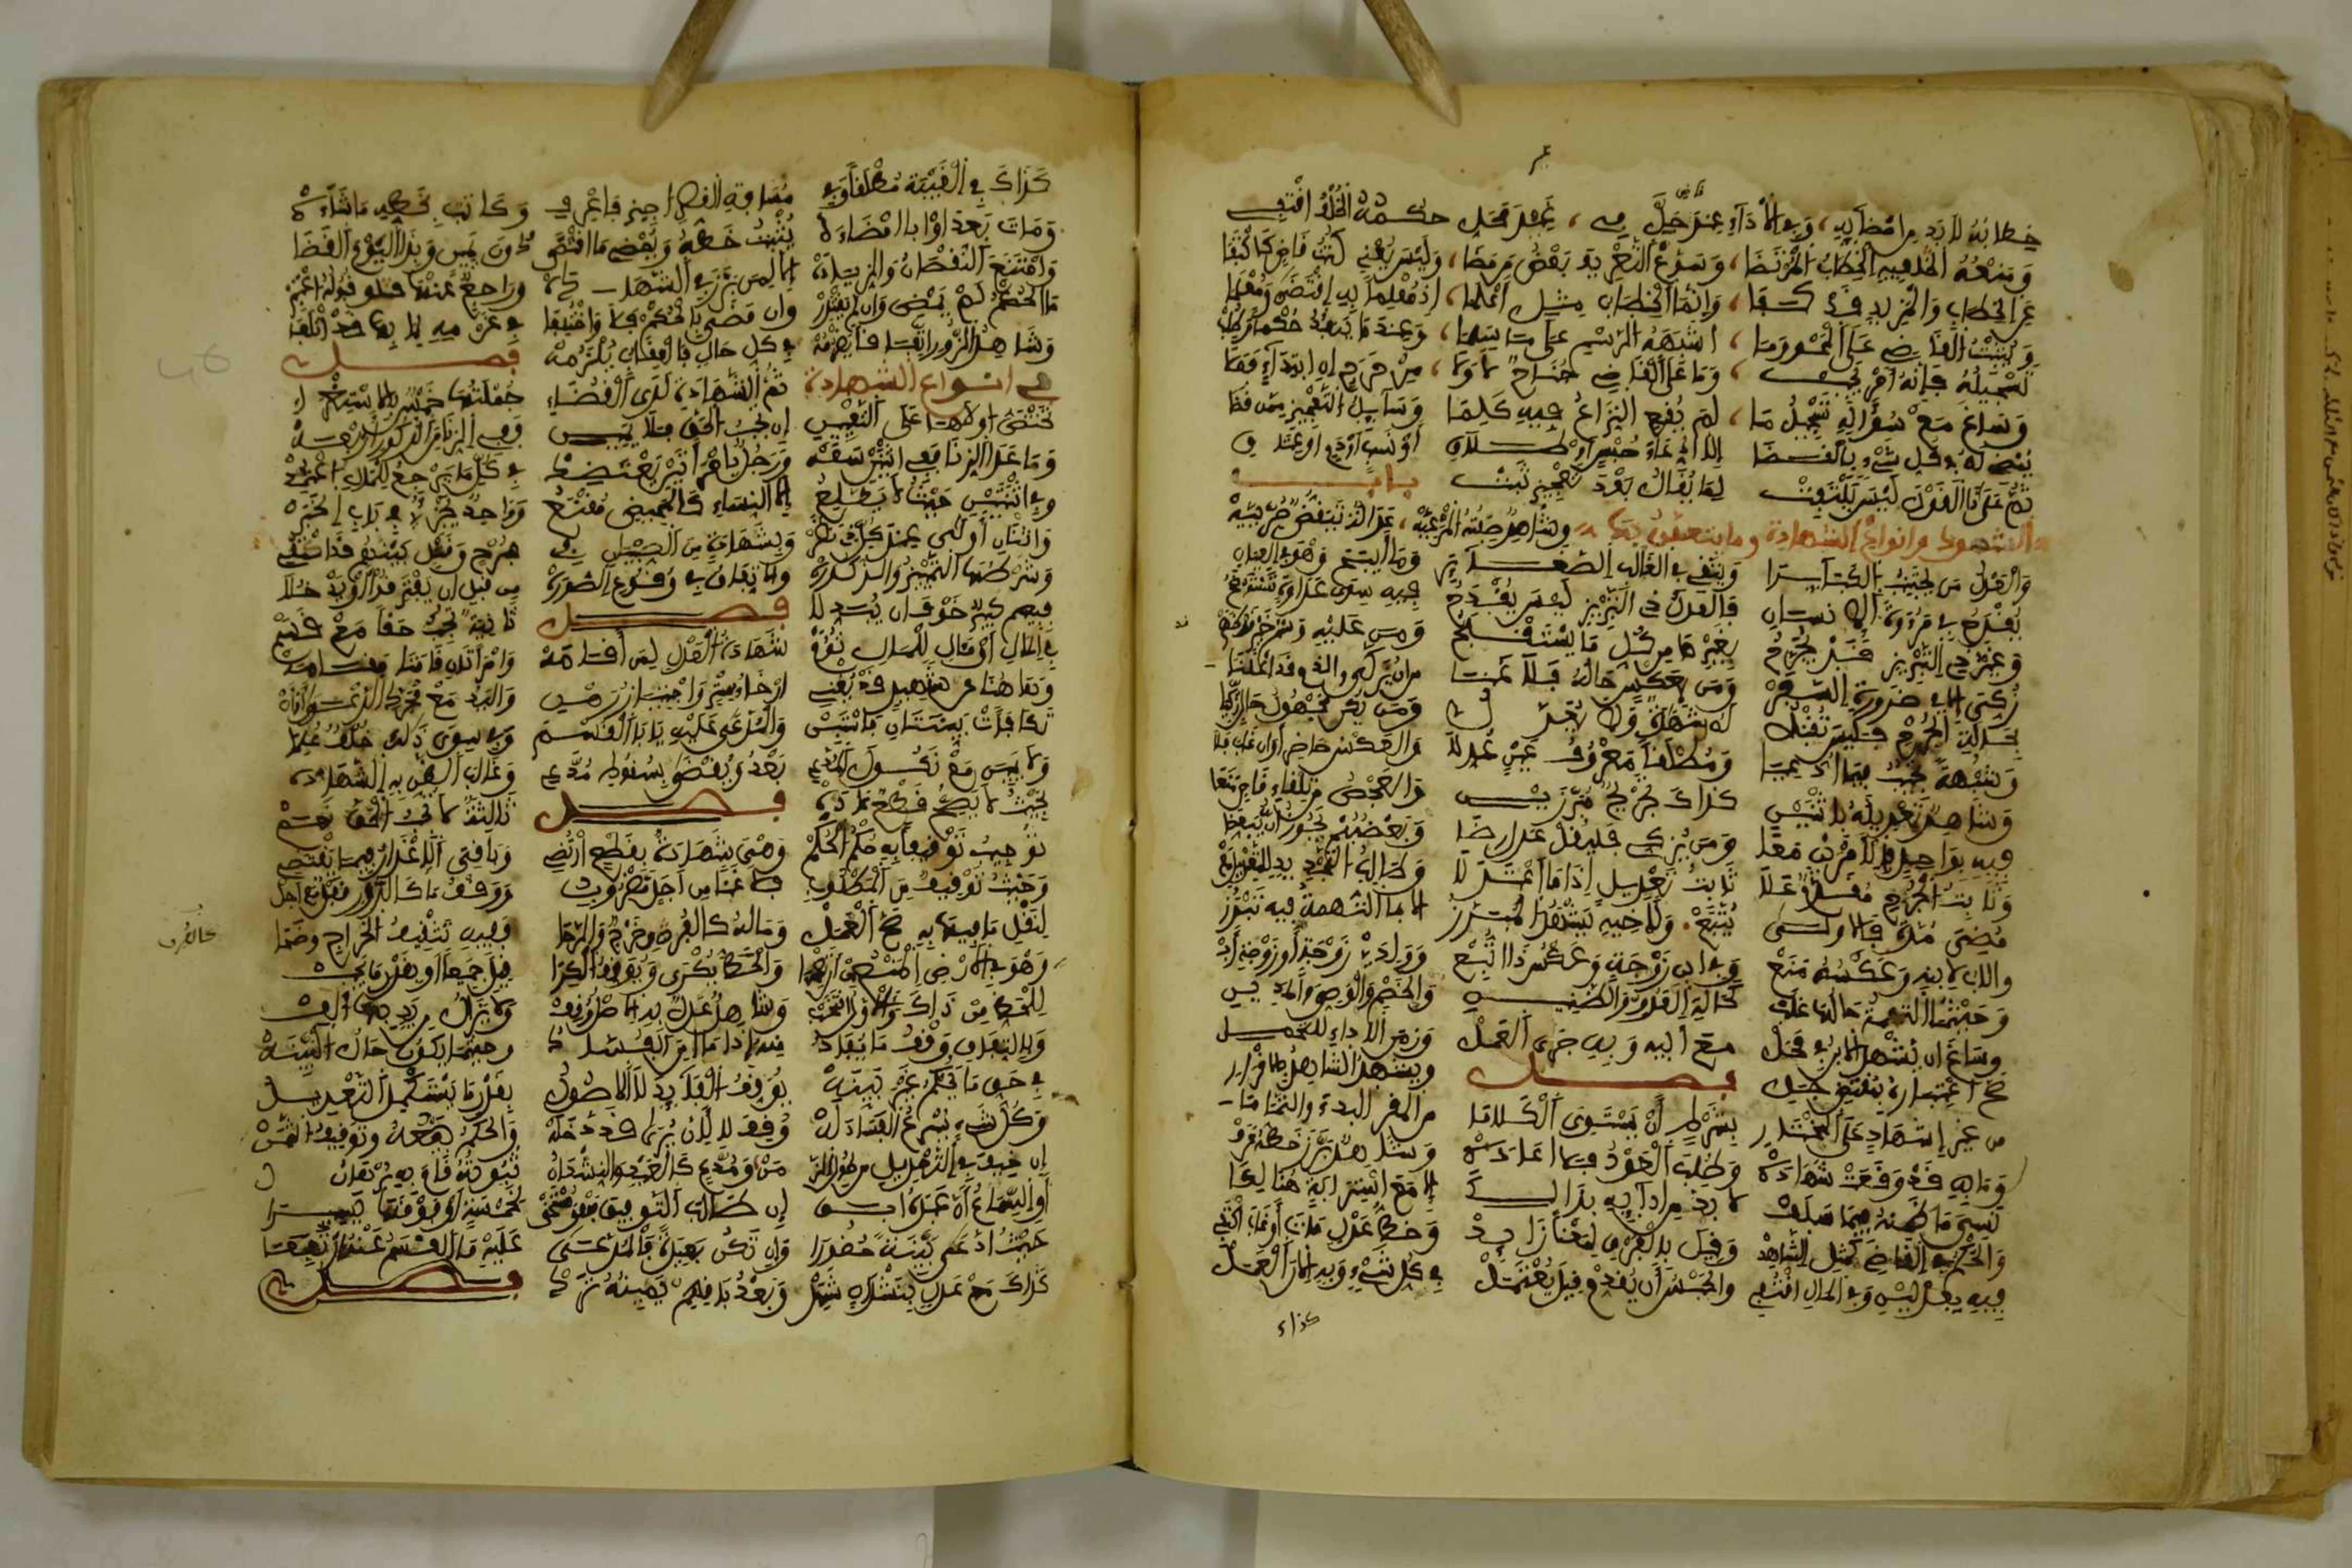 خطابه لا بد من امضايه، وفي الاداء عند قاض حل في، غير محل حكمه الخلف اقتفي
ومنعه فيه الخطاب المرتضا، وسوغ التعريف بعض من مضا، وليس يغني كتب قاض كاكتفا
عن الخطاب والمزيد قد كفا، وانما الخطاب مثل اعلما، اذ معلما به اقتضى ومعلما
ويثبت القاضي على المحو وما، اشبهه الرسم على ما سلما، وعند ما ينفذ حكم وطلب
تسجيله فانه امر يجب، وما على القاضي جناح لا ولا، من حرج ان ابتداء فعلا
وساغ مع سؤاله تسجيل ما، لم يقع النزاع فيه كلما وسايل التعجيز ممن قضا
يمضى له في كل شيء بالقضا الا ادعاء حبس او طلاق او نسب او دم او عتاق
ثم على ذا القول ليس يلتفت لما يقال بعد تعجيز ثبت باب
الشهود وانواع الشهادة وما يتعلق بها وشاهد صفته المرعية، عدالة تيقظ حرية
والعدل من يجتنب الكبايرا ويتقي في الغالب الصغايرا وما ابيح وهو في العيان
يقدح في مروءة الانسان فالعدل ذو التبريز ليس يقدح فيه سوى عداوة تستوضح
وغير ذي التبريز قد يجرح بغيرها من كل ما يستقبح ومن عليه وسم خير قد ظهر
زكي الا في ضرورة السفر ومن بعكس حاله فلا غنا من ان يزكى والذي قد اعلنا
بحالة الجرح فليس تقبل له شهادة ولا يعدل ومن يكن مجهول حال زكيا
وشبهة توجب فيما ادعيا ومطلقا معروف عين عدلا والعكس حاضر وان غاب فلا
وشاهد تعديله باثنين كذاك تجريح مبرزين والفحص من تلقاء قاض قنعا
فيه بواحد في الامرين معا ومن يزكي فليقل عدل رضا وبعضهم يجوز ان يبعضا
وثابت الجرح مقدم على ثابت تعديل اذا ما اعتدلا وطالب التجديد للتعديل مع
مضي مدة فالاولى يتبع ولاخيه يشهد المبرز الا بما التهمة فيه تبرز
والاب لابنه وعكسه منع وفي ابن زوجة وعكس ذا اتبع ووالدي زوجة او زوجة اب
وحيثما التهمة حالها غلب كحالة العدو والظنين والخصم والوصي والمدين
وساغ ان يشهد الابن في محل مع ابيه وبه جرى العمل وزمن الاداء لا التحمل
صح اعتباره لمقتض جلي فصل ويشهد الشاهد بالاقرار
من غير اشهاد على المختار بشرط ان يستوعب الكلاما من المقر البدء والتماما
وما به قد وقعت شهادة وطلب العود فلا اعادة وشاهد برز خطه عرف
نسي ما ضمنه فيما سلف لا بد من ادايه بذلك الا مع استرابة هنالك
والحكم في القاضي كمثل الشاهد وقيل بالفرق لمعنا زايد وخط عدل مات او غاب اكتفي
فيه بعدلين وفي المال اقتفي والحبس ان يقدم وقيل يعتمل في كل شيء وبه الان العمل
كذاك
كذاك في الغيبة مطلقا وفي مسافة القصر اجيز فاعرف وكاتب بخطه ما شاءه
ومات بعد او ابا امضاءه يثبت خطه ويمضي ما اقتضى دون يمين وبذا اليوم القضا
وامتنع النقصان والزيادة الا لمن برز في الشهادة وراجع عنها قبوله اعتبر
ما الحكم لم يمض وان لم يعتذر وان مضى الحكم فلا واختلفا في غرمه لما بها قد اتلفا
وشاهد الزور اتفاقا يغرمه في كل حال والعقاب يلزمه فصل
في انواع الشهادة ثم الشهادة لدى القضاء جملتها خمس بالاستقراء
تختص اولاها على التعيين ان توجب الحق بلا يمين ففي الزنا من الذكور اربعة
وما عدا الزنا ففي اثنين سعة ورجل بامراتين يعتضد في كل ما يرجع للمال اعتمد
وفي اثنتين حيث لا يطلع الا النساء كالمحيض مقنع وواحد يجزئ في باب الخبر
واثنان اولى عند كل ذي نظر وبشهادة من الصبيان في جرح وقتل بينهم قد اكتفي
وشرطها التمييز والذكورة والاتفاق في وقوع الصورة من قبل ان يفترقوا او يدخلا
فيهم كبير خوف ان يبدلا فصل ثانية توجب حقا مع قسم
في المال او ما آل للمال تؤم شهادة العدل لمن اقامه وامراتان قامتا مقامه
وهاهنا عن شاهد قد يغني ارخاء ستر واحتياز رهن واليد مع مجرد الدعوى او ان
تكافات بينتان فاستبن والمدعى عليه يابى القسم وفي سوى ذلك خلف علما
ولا يمين مع نكول المدعي بعد ويقضى بسقوط ما ادعي وغالب الظن به الشهادة
بحيث لا يصح قطع عادة فصل ثالثة لا توجب الحق نعم
توجب توقيفا به حكم الحكم وهي شهادة بقطع ارتضي وباقي الاعذار فيما تقتضي
وحيث توقيف من المطلوب فلا غنا عن اجل مضروب ووقف ما كالدور قفل مع اجل
لنقل ما فيها به صح العمل وماله كالفرن خرج والرحا ففيه توقيف الخراج وضحا
وهو في الارض المنع من ان تعمرا والحظ يكرى ويوقف الكرا قيل جميعا او بقدر ما يجب
للحظ من ذاك والاول انتخب وشاهد عدل به الاصل وقف ولا يزال من يد بها الف
وباتفاق وقف ما يفاد منه اذا ما امن الفساد وحيثما يكون حال البينة
في حق من يحكم غير بينة يوقف الفايد لا الاصول بقدر ما يستكمل التعديل
وكل شيء يسرع الفساد له وقف لا لان يرى قد دخله والحكم بيعه وتوقيف الثمن
ان خيف في التعديل من طول الزمن ومدع كالعبد والنشدان ثبوته قام به برهان
او السماع ان عبده ابق ان طلب التوقيف فهو مستحق لخمسة او فوقها يسيرا
حيث ادعى بينة حضورا وان تكن بعيدة فالمدعى عليه ما القسم عنه ارتفعا
كذاك مع عدل بنشدان شهد وبعد باقيهم يمينه ترد فصل
كالفرن